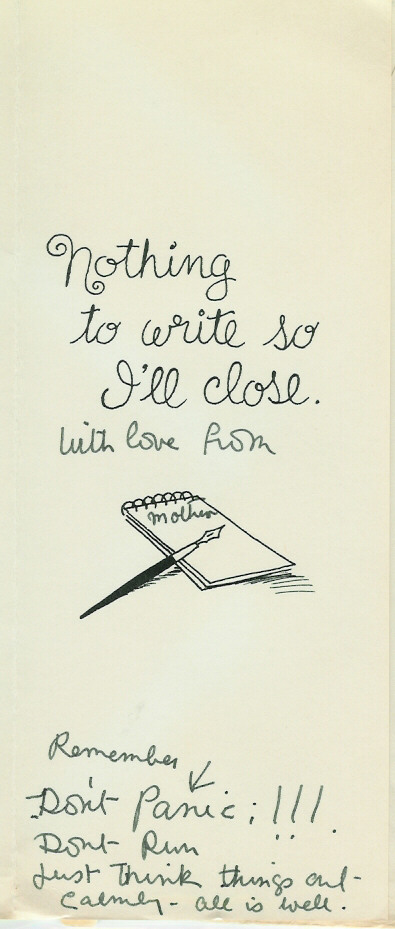 Nothing
to write so
I'll close.
With love from
Mother
Remember
Don't Panic; !!!.
Dont Run
Just Think things out-
Calmly - all is well.